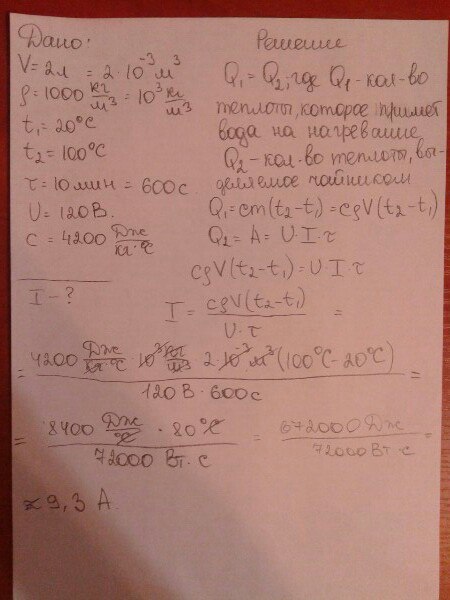 Дано:
V = 2л = 2·10⁻³ м³
ρ = 1000 кг/м³ = 10³ кг/м³
t₁ = 20°C
t₂ = 100°C
τ = 10 мин = 600 с
U = 120 В.
c = 4200 Дж/кг·°C
I - ?
Решение
Q₁ = Q₂, где Q₁ - кол-во
теплоты, которое примет
вода на нагревание
Q₂ - кол-во теплоты, вы-
деляемое чайником
Q₁ = cm(t₂-t₁) = cρV(t₂-t₁)
Q₂ = A = U·I·τ
cρV(t₂-t₁) = U·I·τ
I = cρV(t₂-t₁) / U·τ =
= 4200 Дж/кг·°C · 10³ кг/м³ · 2·10⁻³ м³ (100°C - 20°C) / 120 В · 600 с =
= 8400 Дж/°C · 80°C / 72000 Вт·с = 672000 Дж / 72000 Вт·с =
≈ 9,3 А